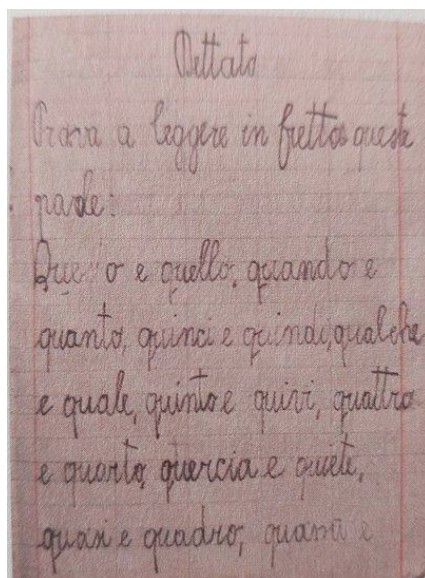 Dettato
Prova a leggere in fretta queste
parole:
Questo e quello, quando e
quanto, quinci e quindi, qualche
e quale, quinto e quivi, quattro
e quarto, quercia e quiete,
quasi e quadro, quanti e